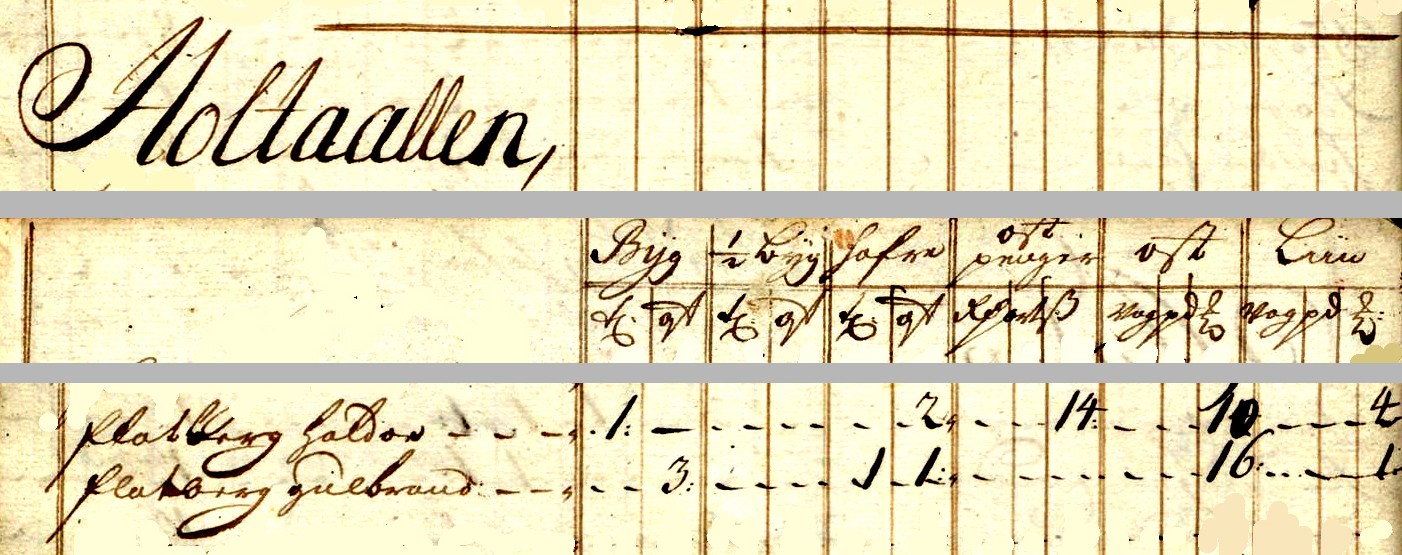 Holtaallen,
Byg ½ byg hafre ost penger ost Liin
tø: qt tø: qt tø: qt Rd ort ß Vog pd ℔ Vog pd ℔:
flatberg haldor - - - 1: — - - - - - 2: - - 14: - - 10 - - - 4
flatberg gulbrand - - - - - 3: - - - - 1 1: - - - - - - - 16: - - - 1